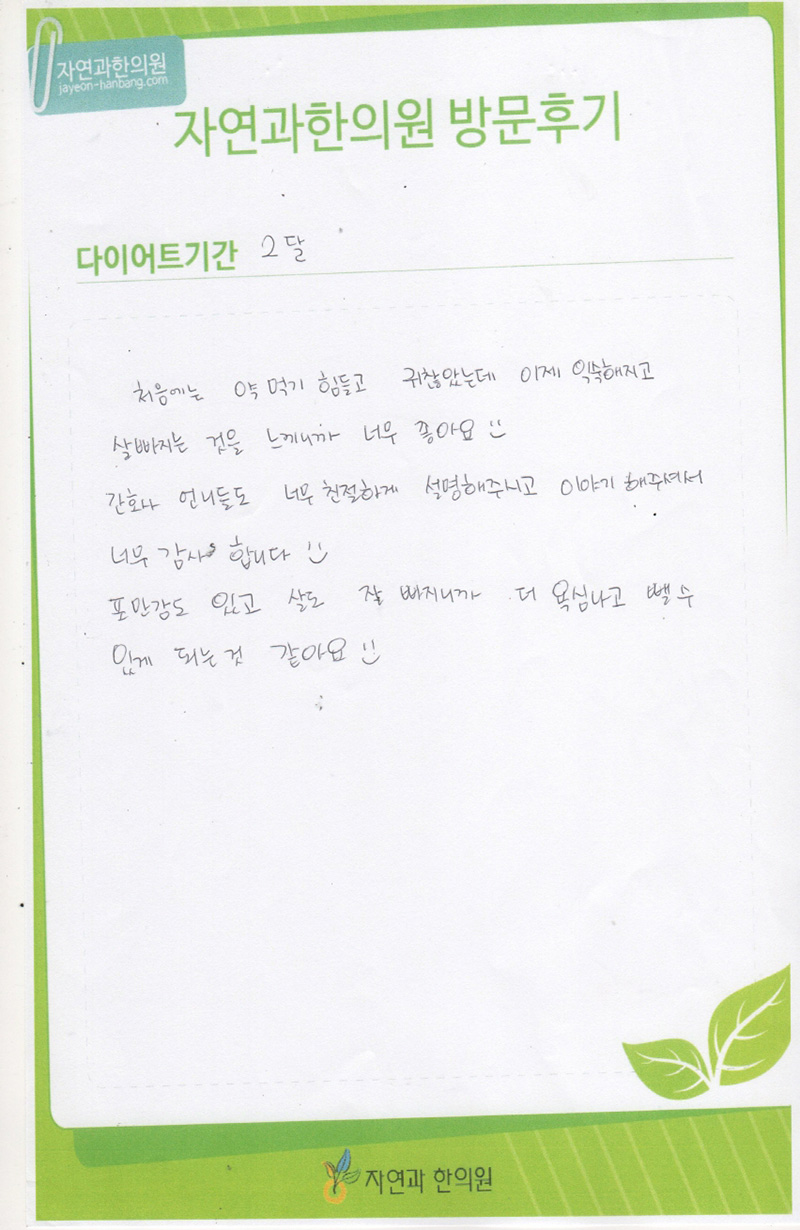 자연과한의원
jayeon-hanbang.com
자연과한의원 방문후기
다이어트기간 2달
처음에는 약 먹기 힘들고 귀찮았는데 이제 익숙해지고
살빠지는 것을 느끼니까 너무 좋아요
간호사 언니들도 너무 친절하게 설명해주시고 이야기 해주셔서
너무 감사 합니다
포만감도 있고 살도 잘 빠지니까 더 욕심나고 뺄 수
있게 되는 것 같아요
자연과 한의원